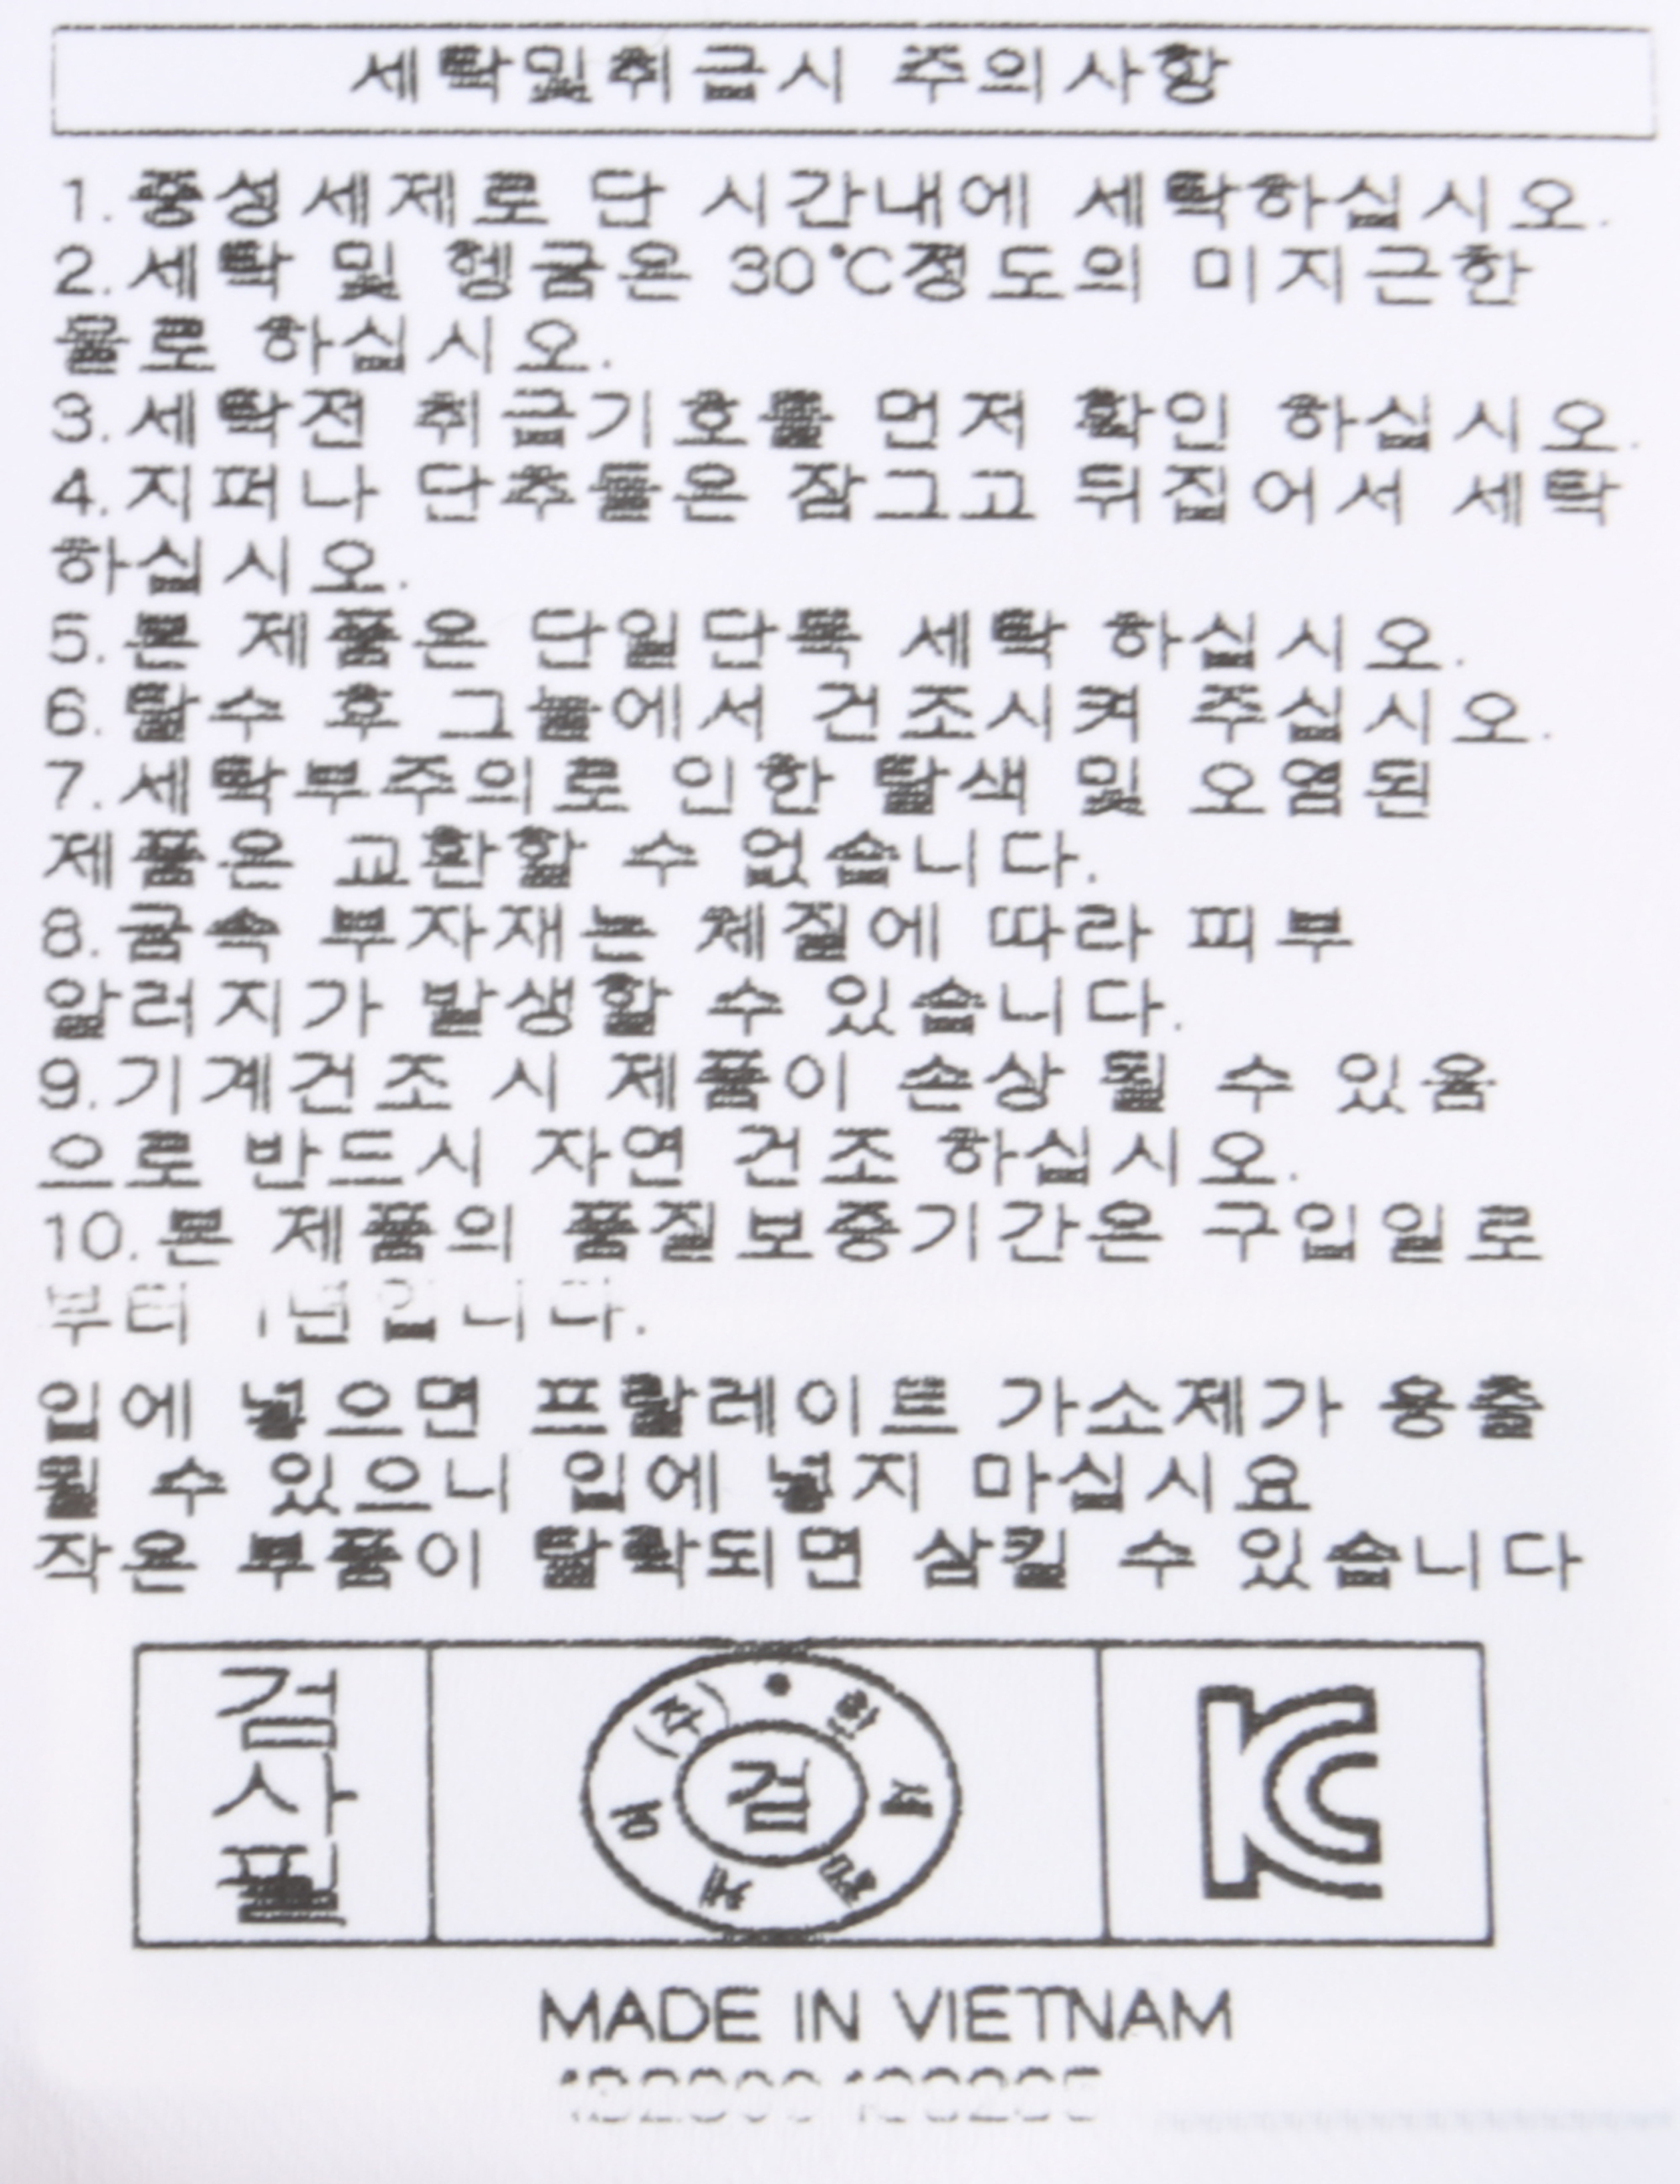 세탁및취급시 주의사항
1.중성세제로 단 시간내에 세탁하십시오.
2.세탁 및 헹굼은 30℃정도의 미지근한
물로 하십시오.
3.세탁전 취급기호를 먼저 확인 하십시오.
4.지퍼나 단추들은 잠그고 뒤집어서 세탁
하십시오.
5.본 제품은 단일단독 세탁 하십시오.
6.탈수 후 그늘에서 건조시켜 주십시오.
7.세탁부주의로 인한 탈색 및 오염된
제품은 교환할 수 없습니다.
8.금속 부자재는 체질에 따라 피부
알러지가 발생할 수 있습니다.
9.기계건조 시 제품이 손상 될 수 있음
으로 반드시 자연 건조 하십시오.
10.본 제품의 품질보증기간은 구입일로
부터 1년입니다.
입에 넣으면 프탈레이트 가소제가 용출
될 수 있으니 입에 넣지 마십시요
작은 부품이 탈락되면 삼킬 수 있습니다
검사필
(주)
검
KC
MADE IN VIETNAM